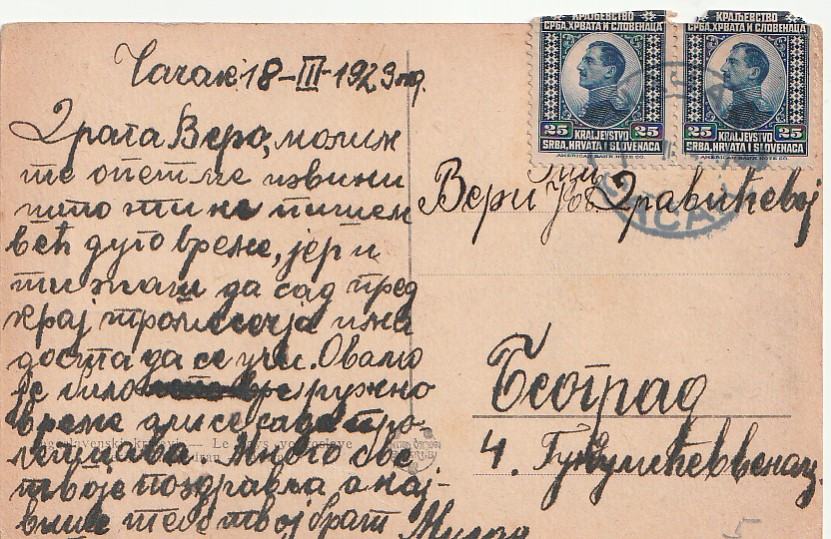 КРАЉЕВСТВО
СРБА, ХРВАТА И СЛОВЕНАЦА
25 KRALJEVSTVO 25
SRBA, HRVATA I SLOVENACA
AMERICAN BANK NOTE CO.
КРАЉЕВСТВО
СРБА, ХРВАТА И СЛОВЕНАЦА
25 KRALJEVSTVO 25
SRBA, HRVATA I SLOVENACA
AMERICAN BANK NOTE CO.
Чачак 18-III-1923 год.
Драга Веро, молим
те опет ме извини
што ти не пишем
већ дуго време, јер и
ти знаш да сад пред
крај тромесечја има
доста да се учи. Овамо
је било ружно
време али се сада про-
лепшава. Много све
твоје поздравља а нај-
више тебе твој брат
Вери Јов. Здравићевој
Београд
4. Гундулићев венац
Le Pays yougoslave